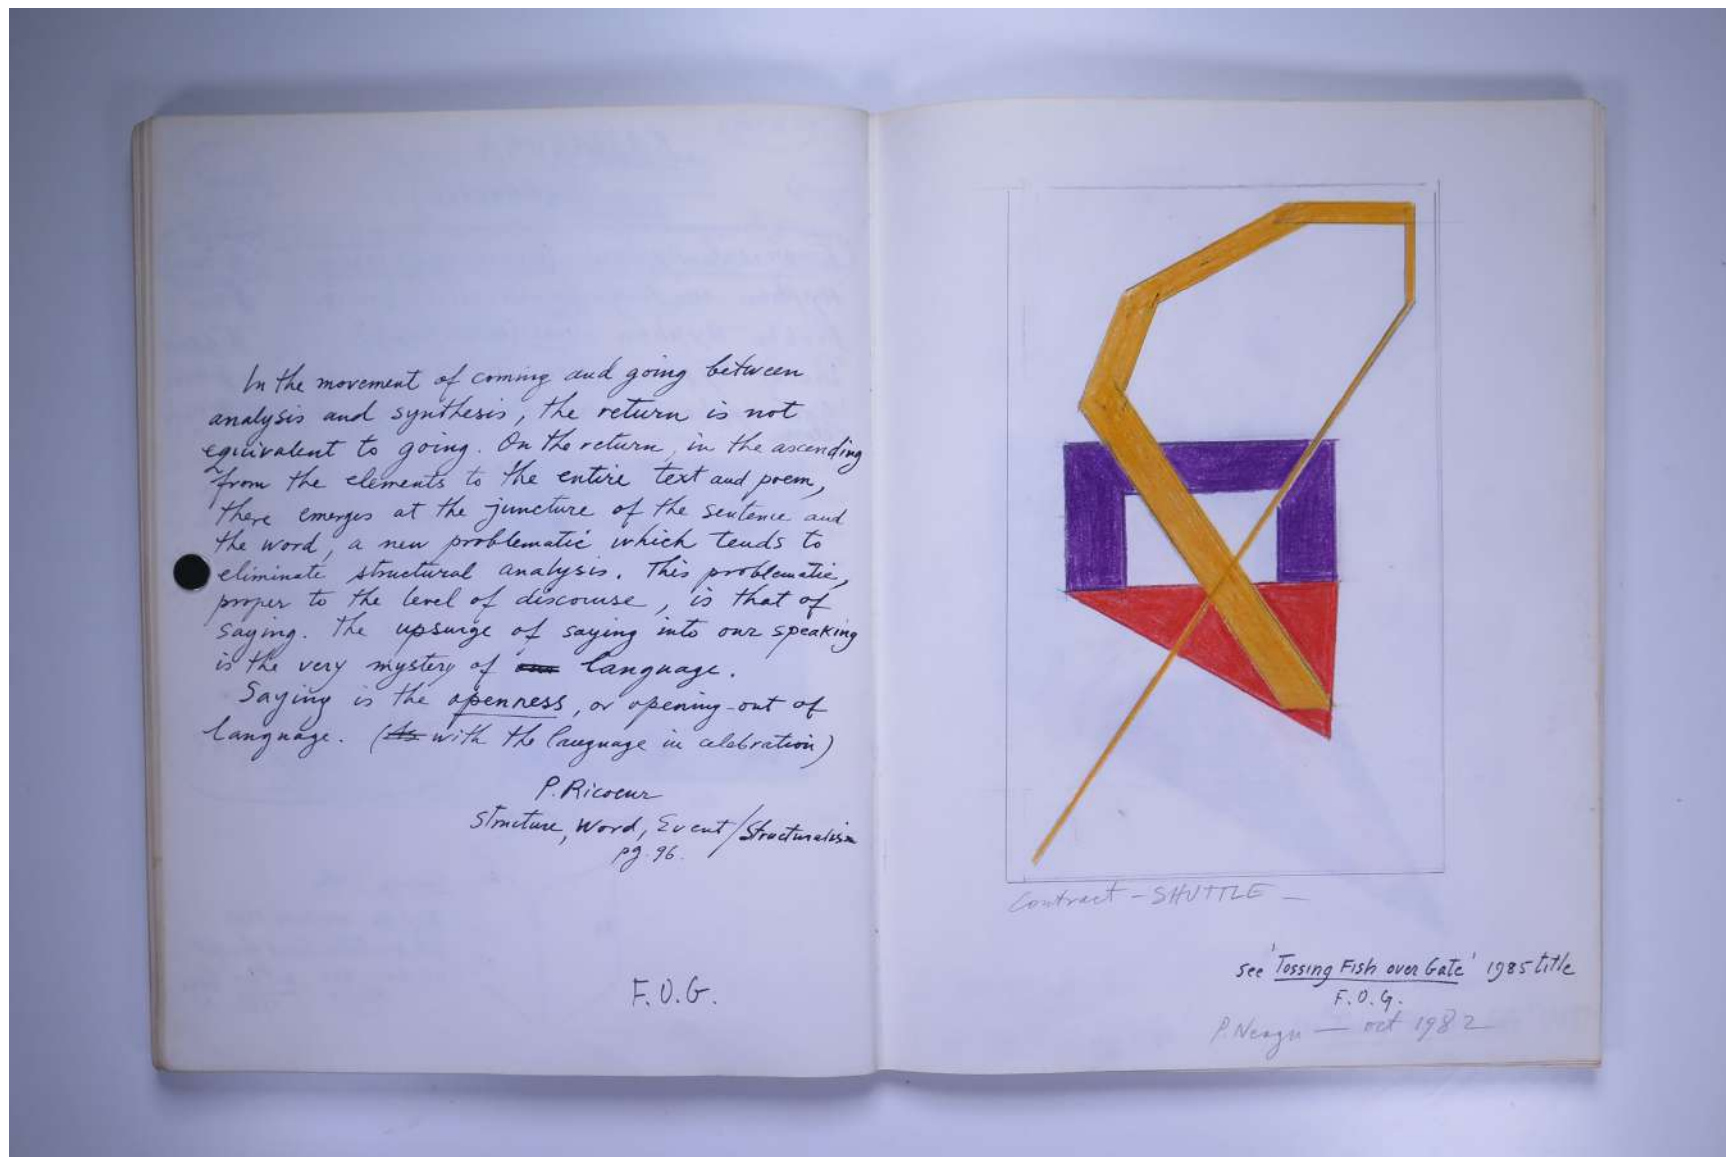 In the movement of coming and going between
analysis and synthesis, the return is not
equivalent to going. On the return, in the ascending
from the elements to the entire text and poem,
there emerges at the juncture of the sentence and
the word, a new problematic which tends to
eliminate structural analysis. This problematic,
proper to the level of discourse, is that of
saying. The upsurge of saying into our speaking
is the very mystery of language.
Saying is the openness, or opening-out of
language. (As with the language in celebration)
P. Ricoeur
Structure, Word, Event/Structuralism
pg. 96.
F.O.G.
Contract - SHUTTLE -
see 'Tossing Fish over Gate' 1985 title
F.O.G.
P. Neagu — oct 1982